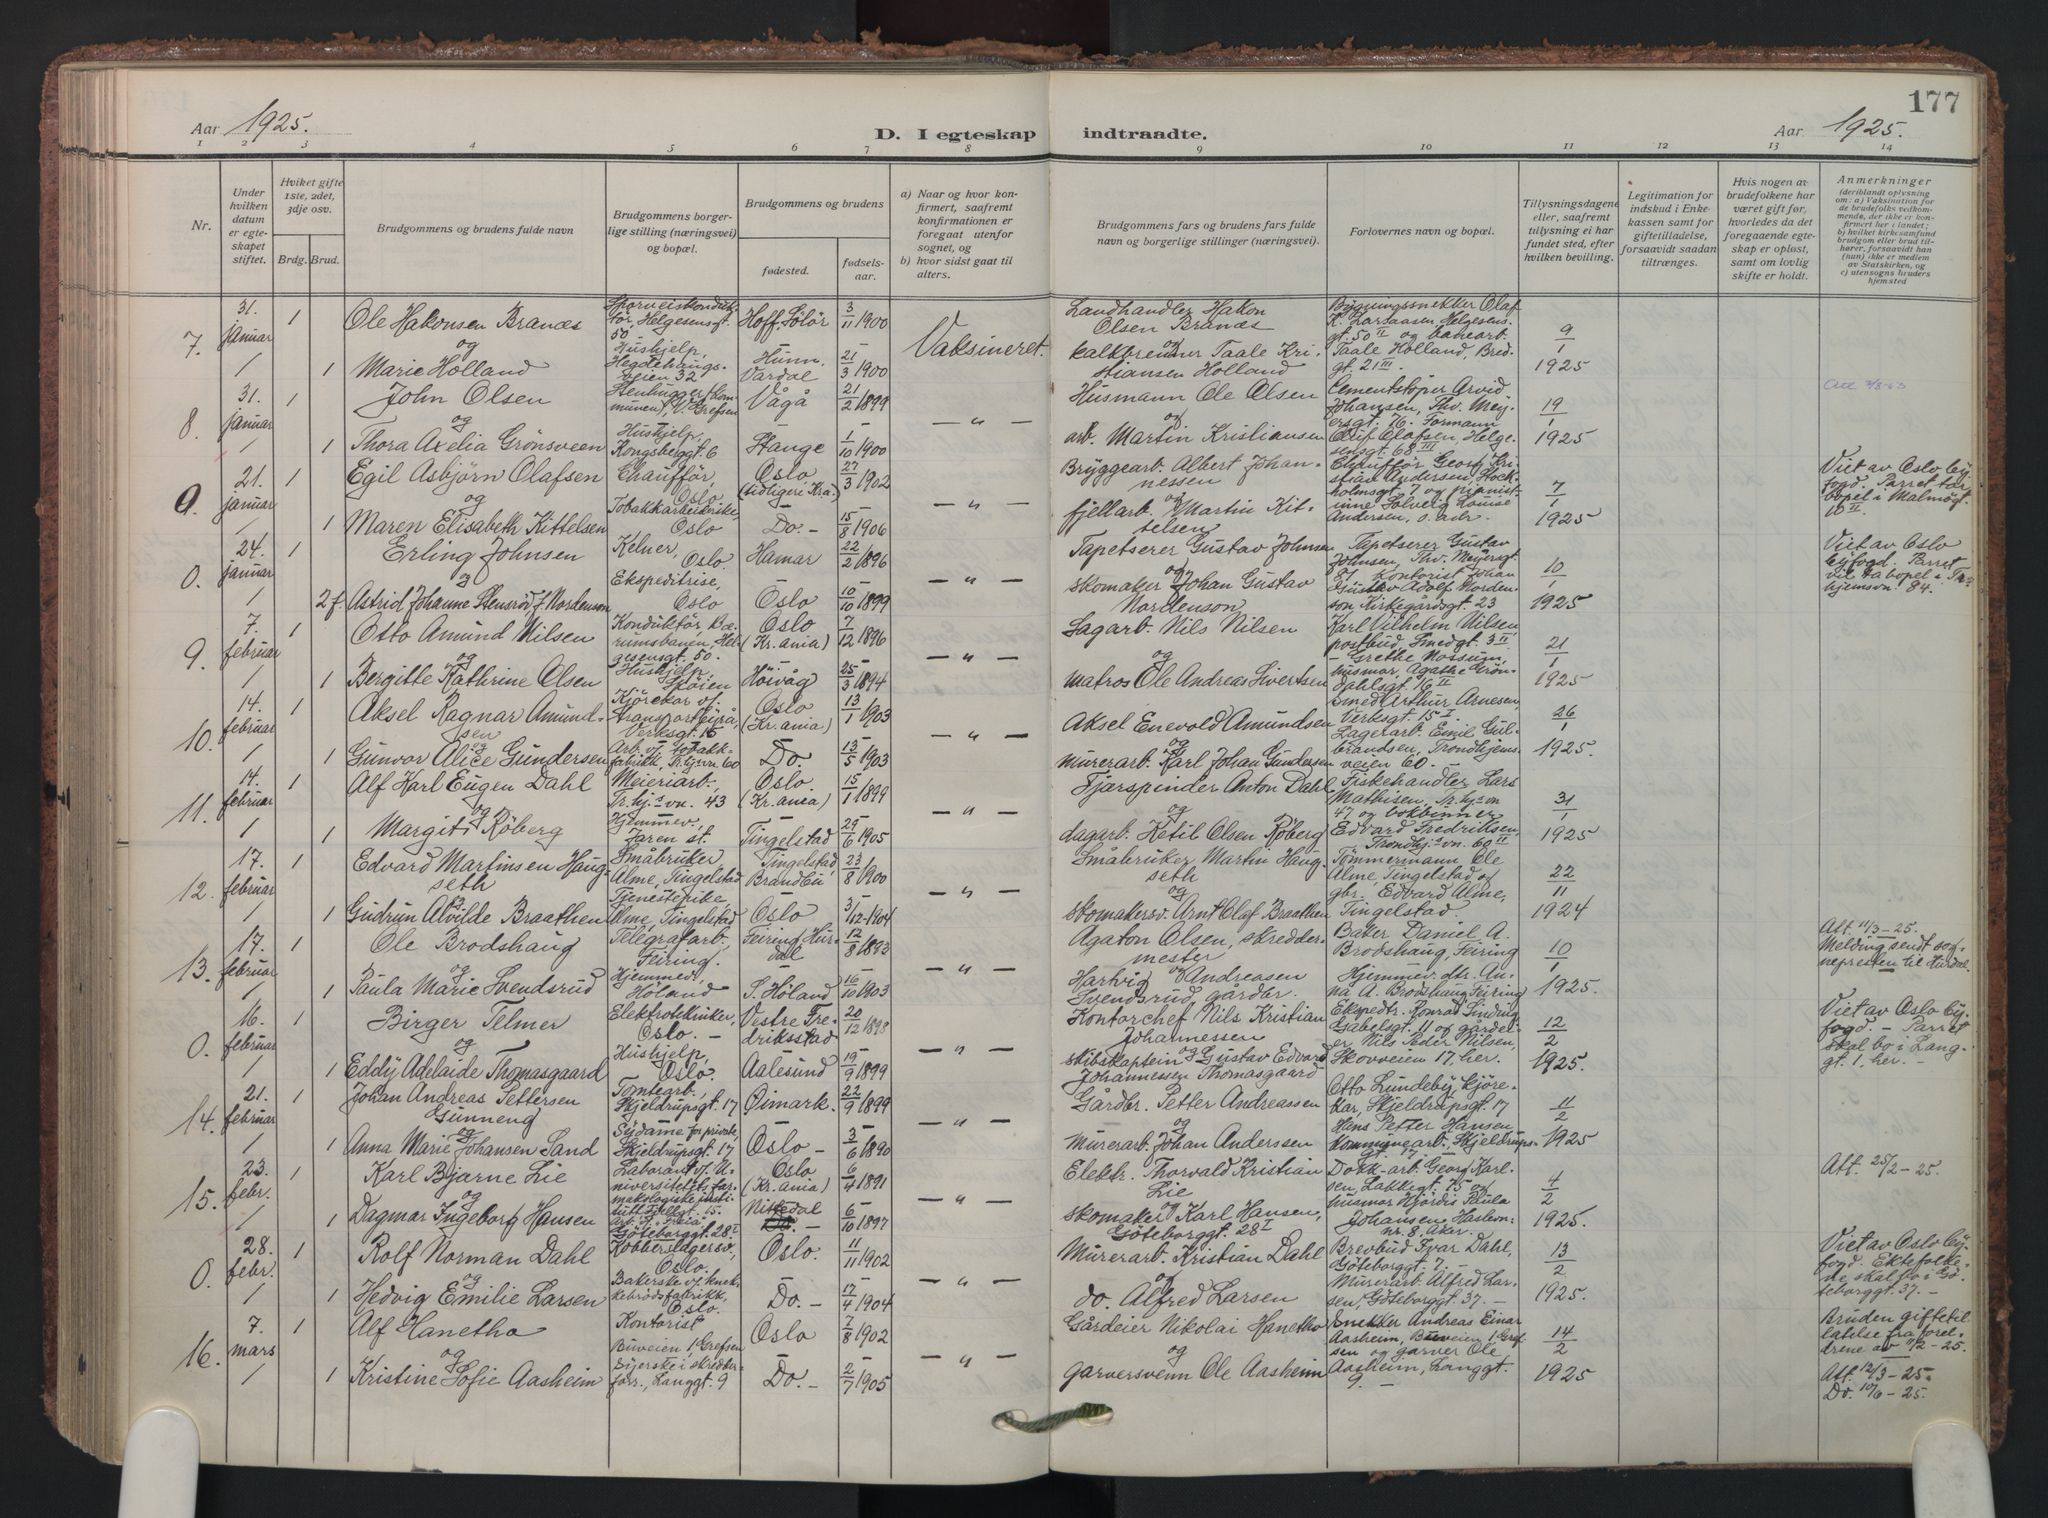 177
Aar 1925.
D. I egteskap
indtraadte.
Aar 1925.
1 2 3 4 5 6 7 8 9 10 11 12 13 14
Nr.
Under hvilken datum er egteskapet stiftet.
Hviket gifte 1ste, 2det, 3dje osv.
Brdg. Brud.
Brudgommens og brudens fulde navn
Brudgommens borgerlige stilling (næringsvei) og bopæl.
Brudgommens og brudens
fødested.
fødselsaar.
a) Naar og hvor konfirmert, saafremt konfirmationen er foregaat utenfor sognet, og
b) hvor sidst gaat til alters.
Brudgommens fars og brudens fars fulde navn og borgerlige stillinger (næringsvei).
Forlovernes navn og bopæl.
Tillysningsdagene eller, saafremt tillysning ei har fundet sted, efter hvilken bevilling.
Legitimation for indskud i Enkekassen samt for giftetilladelse, forsaavidt saadan tiltrænges.
Hvis nogen av brudefolkene har været gift før, hvorledes da det foregaaende egteskap er opløst, samt om lovlig skifte er holdt.
Anmerkninger
(deriblandt oplysning om: a) Vaksination for de brudefolks vedkommende, der ikke er konfirmert her i landet; b) hvilket kirkesamfund brudgom eller brud tilhører, forsaavidt han (hun) ikke er medlem av Statskirken, og c) utensogns bruders hjemsted
7. 31. januar 1 Ole Hakonsen Brænæs Sporveiskonduktør, Helgesensgt. 50 Hoff, Solør 3/11 1900 Vaksineret. Landhandler Hakon Olsen Brænæs Bygningssnekker Olaf K. Larsaasen Helgesensgt. 50 II og banearb. 9/1
og
1 Marie Holland Hushjelp, Hegdehaugsveien 32 Hunn. Vardal 21/3 1900 kalkbrenner Taale Kristiansen Holland Taale Holland, Bredgt. 21 III. 1925
8. 31. januar 1 John Olsen Vågå 21/2 1899 — " — Husmann Ole Olsen Cementstøper Arvid Johansen, Thv. Meyersgt. 76. Formann 19/1
og
1 Thora Axelia Grønsveen Hushjelp, Kongsberggt. 6 Stange 1/10 1900 arb. Martin Kristiansen Olaf Olafsen, Helgesensgt. 68 III 1925
0. 21. januar 1 Egil Asbjørn Olafsen Chauffør, Oslo Oslo (tidligere Kra.) 27/3 1902 — " — Bryggearb. Albert Johannessen Chauffør Georg Kristian Andersen, Stockholmsgt. 7 og pianistinne Solveig Louise 7/1 Viet av Oslo byfogd. Parret tar bopel i Malmøgt. 10 II.
og
1 Maren Elisabeth Kittelsen Tobakkarbeiderske, Oslo Do. - 15/8 1906 fjellarb. Martin Kittelsen Andersen, s. adr. 1925
0. 24. januar 1 Erling Johnsen Kelner, Oslo Hamar 22/2 1896 — " — Tapetserer Gustav Johnsen Tapetserer Gustav Johnsen, Thv. Meyersgt. 10/1 Viet av Oslo byfogd. Parret
og
2 f. Astrid Johanne Stensrød f. Nordenson Ekspeditrise, Oslo Oslo 10/10 1899 skomaker Johan Gustav Nordenson kontorist Johan Gustav Adolf Nordenson, Kirkegårdsgt. 23 1925
9. 7. februar 1 Otto Amund Nilsen Konduktør Bærumsbanen, Helgesensgt. 50. Oslo (Kr.ania) 7/12 1896 — " — Sagarb. Nils Nilsen Karl Vilhelm Nilsen postbud, Smedgt. 3 II 21/1
og
1 Bergitte Kathrine Olsen Hushjelp, Skøien Høivåg 25/3 1894 matros Ole Andreas Sivertsen Grethe Mossum, husmor, Agathe Grøndahlsgt. 16 II 1925
10. 14. februar 1 Aksel Ragnar Amundsen Verksgt. 15 Oslo (Kr.ania) 13/1 1903 — " — Aksel Enevold Amundsen Smed Arthur Arnesen, Verksgt. 15 I 26/1
og
1 Gunvor Alice Gundersen Arb. v. tobakkfabrikk, Tr.hj.vn. 60 Do. 13/5 1903 Murerarb. Karl Johan Gundersen Lagerarb. Emil Gulbrandsen, Trondhjemsveien 60. - 1925.
11. 14. februar 1 Alf Karl Eugen Dahl Meieriarb. Tr.hj.s vn. 43 Oslo. (Kr.ania) 15/1 1899 — " — Fjærspinder Anton Dahl Fiskehandler Lars Mathisen, Tr.hj.s vn 47 og bokbinner 31/1
og
1 Margit Røberg Hjemmev. Jaren st. Tingelstad 29/6 1905 dagarb. Ketil Olsen Røberg Edvard Fredriksen, Trondhj.s vn. 60 II 1925
12. 17. februar 1 Edvard Martinsen Haugseth Småbruker, Alme, Tingelstad Tingelstad, Brandbu 23/8 1900 — " — Småbruker Martin Haugseth Tømmermann Ole Alme Tingelstad og 22/11
og
1 Gudrun Alvilde Braathen Tjenestepike, Alme, Tingelstad Oslo 31/12-1904 skomakersv. Arnt Olaf Braathen gbr. Edvard Alme, Tingelstad. 1924
13. 17. februar 1 Ole Brodshaug Telegrafarb. Feiring. Feiring, Hurdal 12/8 1893 — " — Agaton Olsen, skreddermester Baker Daniel A. Brodshaug, Feiring 10/1 Att. 11/3-25. Melding sendt sognepresten til Hurdal.
og
1 Paula Marie Svendsrud Hjemmev. Høland S. Høland 16/10 1903 Hartvig Andreasen Svendsrud, gårdbr. Hjemmev. dtr. Anna A. Brodshaug, Feiring 1925.
0. 16. februar 1 Birger Telmer Elektrotekniker, Oslo. - Vestre Fredriksstad 20/12 1898 — " — Kontorchef Nils Kristian Johannessen Ekspedtr. Konrad Lindrug Gabelsgt. 11 og gårdeier Nils Peder Nilsen, 12/2 Viet av Oslo byfogd. - Parret skal bo i Langgt. 1, her.
og
1 Eddy Adelaide Thomasgaard Hushjelp, Oslo. Aalesund 19/9 1899 skibskaptein Gustav Edvard Johannessen Thomasgaard Skovveien 17, her. 1925.
14. 21. februar 1 Johan Andreas Pettersen Gunneng Tomtearb. Skjeldrupsgt. 17 Øimark. 22/9 1899 — " — Gårdbr. Petter Andreassen Otto Lundeby, kjørekar, Skjeldrupsgt. 17 11/2
og
1 Anna Marie Johansen Sand Sydame for private, Skjeldrupsgt. 17 Oslo - 3/6 1890 Murerarb. Johan Anderssen Hans Petter Hansen kommunearb. Skjeldrupsgt. 17. - 1925
15. 23. febr. 1 Karl Bjarne Lie Laborant v. Universitetets farmakologiske institutt Oslo (Kr.ania) 6/4 1891 — " — Elektr. Thorvald Kristian Lie Dokk-arb. Georg Karlsen, Lakkegt. 75 og 4/2 Att. 25/2-25.
og
1 Dagmar Ingeborg Hansen Arb. v. Freia, Göteborggt. 28 I Nittedal 6/10 1897 skomaker Karl Hansen, Göteborggt. 28 I husmor Hjørdis Paula Johansen, nr. 8, Aker. 1925.
0. 28. febr. 1 Rolf Norman Dahl Kobberslagersv., Oslo. Oslo. 11/11 1902 — " — Murerarb. Kristian Dahl Brevbud Ivar Dahl, Göteborggt. 7. - 13/2 Viet av Oslo byfogd. Ektefolkene skal bo i Göteborggt. 37. -
og
1 Hedvig Emilie Larsen Bakerske v. knekkebrødsfabrikk, Oslo. Do. - 17/4 1904 do. Alfred Larsen Murerarb. Alfred Larsen, Göteborggt. 37. - 1925.
16. 7. mars 1 Alf Hanetho Kontorist Buveien 1, Grefsen Oslo 7/8 1902 — " — Gårdeier Nikolai Hanetho Snekker Andreas Einar Aasheim, Buveien 1 Grefsen og garver Ole 14/2 Bruden giftetillatelse fra foreldrene av 11/2-25.
og
1 Kristine Sofie Aasheim Syerske i skredderforr., Langgt. 9 Do. - 2/7 1905 garversvenn Ole Aasheim Aasheim, Langgt. 9. - 1925 Att. 12/3-25. Do. 10/6-25.